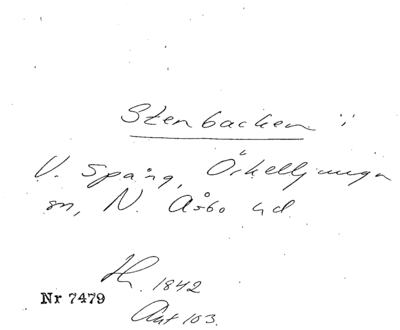 Stenbacken i
V. Spång, Örkelljunga
sn, N. Åsbo hd.
Hr. 1842
Nr 7479
Akt 103.